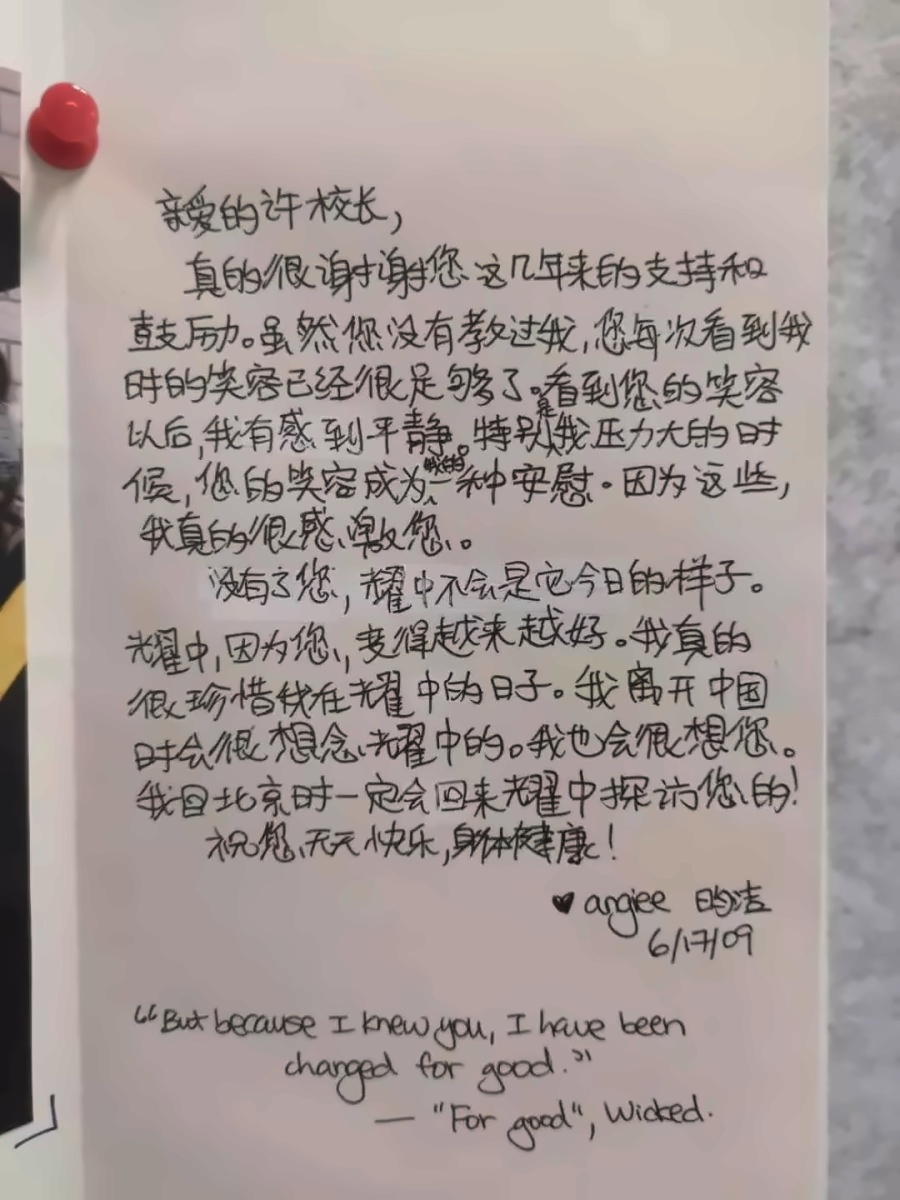 亲爱的许校长,
真的很谢谢您这几年来的支持和
鼓励。虽然您没有教过我,您每次看到我
时的笑容已经很足够了。看到您的笑容
以后,我有感到平静。特别是我压力大的时
候,您的笑容成为我的一种安慰。因为这些,
我真的很感激您。
没有了您,耀中不会是它今日的样子。
耀中,因为您,变得越来越好。我真的
很珍惜我在耀中的日子。我离开中国
时会很想念耀中的。我也会很想您。
我回北京时一定会回来耀中探访您的!
祝您天天快乐,身体健康!
♥ angiee 昀洁
6/17/09
“But because I knew you, I have been
changed for good.”
— "For good", Wicked.